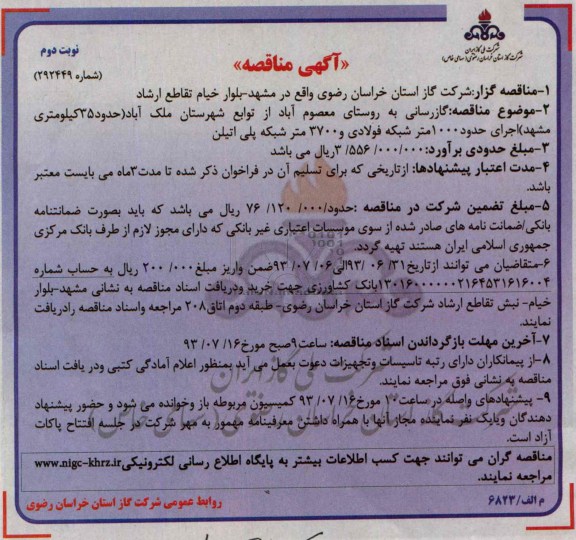 شرکت ملی گاز ایران
شرکت گاز استان خراسان رضوی (سهامی خاص)
نوبت دوم
«آگهی مناقصه»
(شماره ۲۹۲۴۴۹)
۱-مناقصه گزار:شرکت گاز استان خراسان رضوی واقع در مشهد-بلوار خیام تقاطع ارشاد
۲-موضوع مناقصه:گازرسانی به روستای معصوم آباد از توابع شهرستان ملک آباد(حدود۳۵کیلومتری
مشهد)اجرای حدود۱۰۰۰متر شبکه فولادی و۳۷۰۰ متر شبکه پلی اتیلن
۳-مبلغ حدودی برآورد:۳/۵۵۶/۰۰۰/۰۰۰ریال می باشد
۴-مدت اعتبار پیشنهادها: ازتاریخی که برای تسلیم آن در فراخوان ذکر شده تا مدت۳ماه می بایست معتبر
باشد.
۵-مبلغ تضمین شرکت در مناقصه :حدود۷۶/۱۲۰/۰۰۰ ریال می باشد که باید بصورت ضمانتنامه
بانکی/ضمانت نامه های صادر شده از سوی موسسات اعتباری غیر بانکی که دارای مجوز لازم از طرف بانک مرکزی
جمهوری اسلامی ایران هستند تهیه گردد.
۶-متقاضیان می توانند ازتاریخ۳۱/۰۶/۹۳الی۰۶/۰۷/۹۳ضمن واریز مبلغ۲۰۰/۰۰۰ ریال به حساب شماره
بانک کشاورزی جهت خرید ودریافت اسناد مناقصه به نشانی مشهد-بلوار
خیام- نبش تقاطع ارشاد شرکت گاز استان خراسان رضوی- طبقه دوم اتاق۲۰۸ مراجعه واسناد مناقصه رادریافت
نمایند.
۷-آخرین مهلت بازگرداندن اسناد مناقصه: ساعت۹صبح مورخ۱۶/۰۷/۹۳
۸-از پیمانکاران دارای رتبه تاسیسات وتجهیزات دعوت بعمل می آید بمنظور اعلام آمادگی کتبی ودر یافت اسناد
مناقصه به نشانی فوق مراجعه نمایند.
۹- پیشنهادهای واصله در ساعت۱۰ مورخ۱۶/۰۷/۹۳ کمیسیون مربوطه باز وخوانده می شود و حضور پیشنهاد
دهندگان ویایک نفر نماینده مجاز آنها با همراه داشتن معرفینامه ممهور به مهر شرکت در جلسه افتتاح پاکات
آزاد است.
مناقصه گران می توانند جهت کسب اطلاعات بیشتر به پایگاه اطلاع رسانی لکترونیکیwww.nigc-khrz.ir
مراجعه نمایند.
م الف/۶۸۲۳
روابط عمومی شرکت گاز استان خراسان رضوی